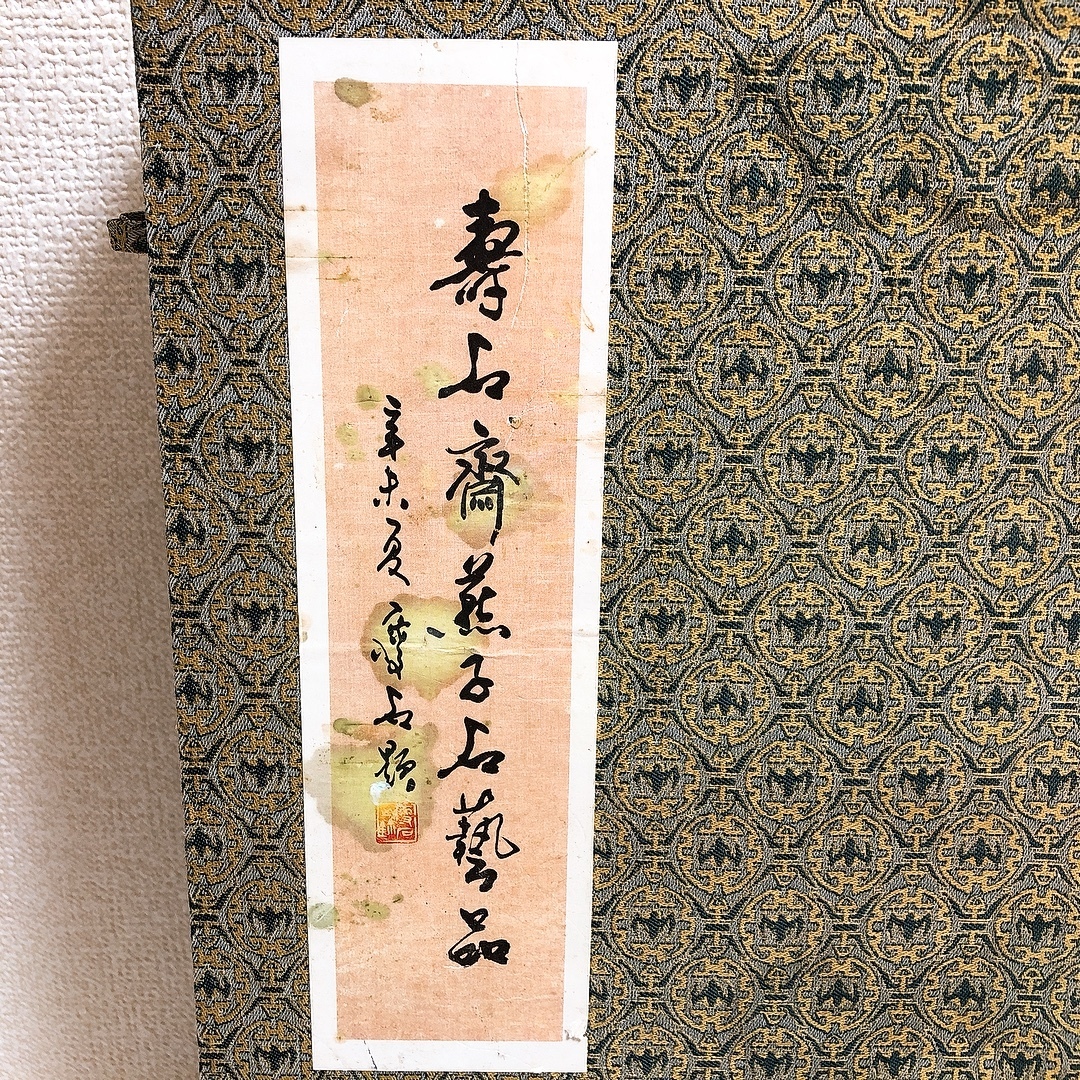 壽石齋燕子石藝品
辛未夏 壽石題